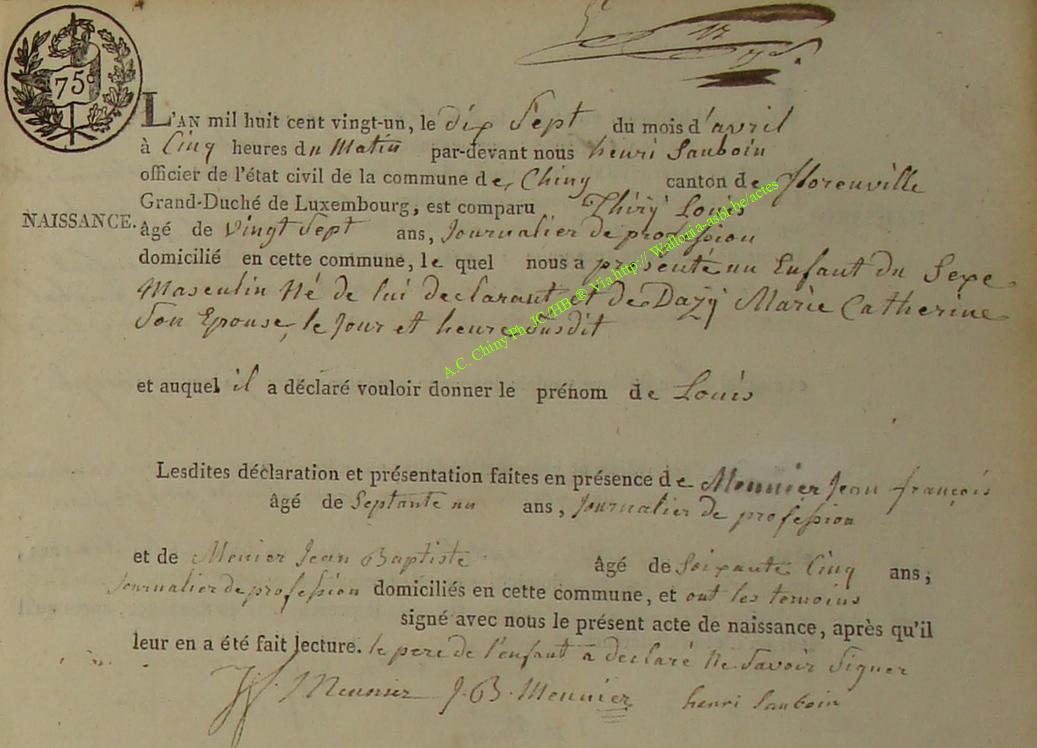 75c
N° 17
L'AN mil huit cent vingt-un, le dix Sept du mois d'avril
à Cinq heures du Matin par-devant nous henri Sauboin
officier de l'état civil de la commune de Chiny canton de florenville
Grand-Duché de Luxembourg, est comparu Thiry Louis
NAISSANCE. âgé de Vingt Sept ans, Journalier de profession
domicilié en cette commune, le quel nous a présenté un Enfant du Sexe
Masculin Né de lui declarant et de Dazy Marie Catherine
Son Epouse, le Jour et heure susdit
A.C. Chiny Ph. JC/HB ® Via http:// Wallonia-asbl.be/actes
et auquel il a déclaré vouloir donner le prénom de Louis
Lesdites déclaration et présentation faites en présence de Meunier Jean françois
âgé de Septante un ans, Journalier de profession
et de Menier Jean Baptiste âgé de Soixante Cinq ans,
Journalier de profession domiciliés en cette commune, et ont les temoins
signé avec nous le présent acte de naissance, après qu'il
leur en a été fait lecture. le pere de l'enfant a declaré Ne Savoir Signer
Meunier J. B. Meunier henri Sauboin